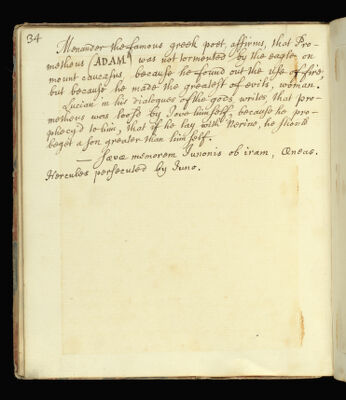 34
Menander the famous greek poet, affirms, that Pro-
metheus (ADAM) was not tormented by the eagle, on
mount caucasus, because he found out the use of fire,
but because he made the greatest of evils, woman.
Lucian in his dialogues of the gods writes, that pro-
metheus was loos'd by Jove himself, because he pro-
phecy'd to him, that if he lay with Nerine, he should
beget a son greater than himself.
— Sævæ memorem Junonis ob iram, Æneas.
Hercules persecuted by Juno.